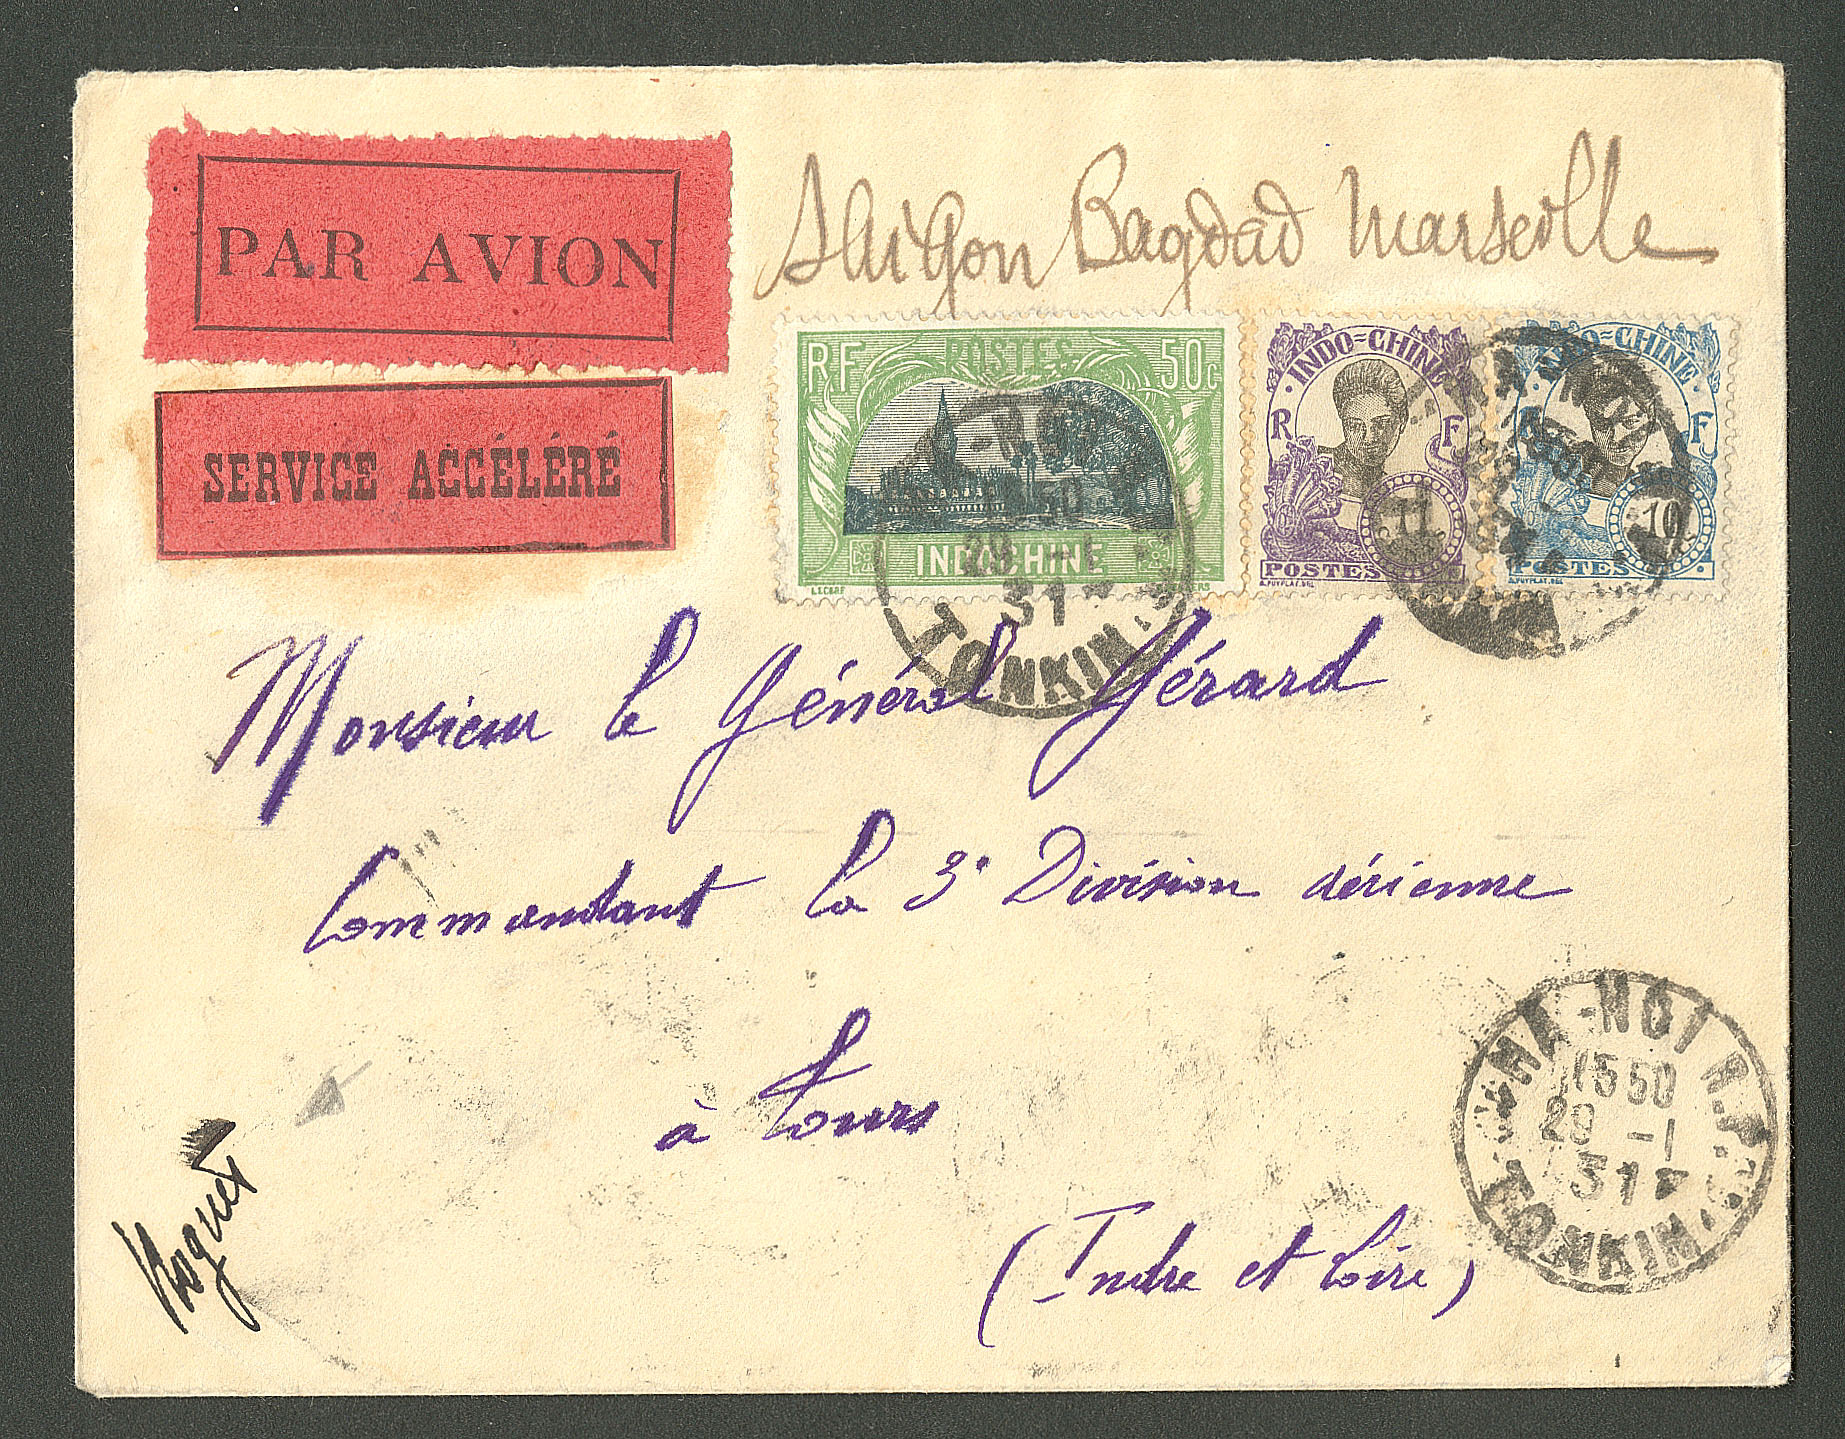 PAR AVION
SERVICE ACCÉLÉRÉ
Saïgon Bagdad Marseille
RF POSTES 50c
INDOCHINE
INDO=CHINE
R F
11
POSTES
A.PUYPLAT.DEL
INDO=CHINE
R F
10
POSTES
A.PUYPLAT.DEL
HA-NOI
1550
28 -1
31
TONKIN
Monsieur le Général Gérard
Commandant la 3e Division aérienne
à Tours
(Indre et Loire)
HA-NOI R.P.
1550
28 -1
31
TONKIN